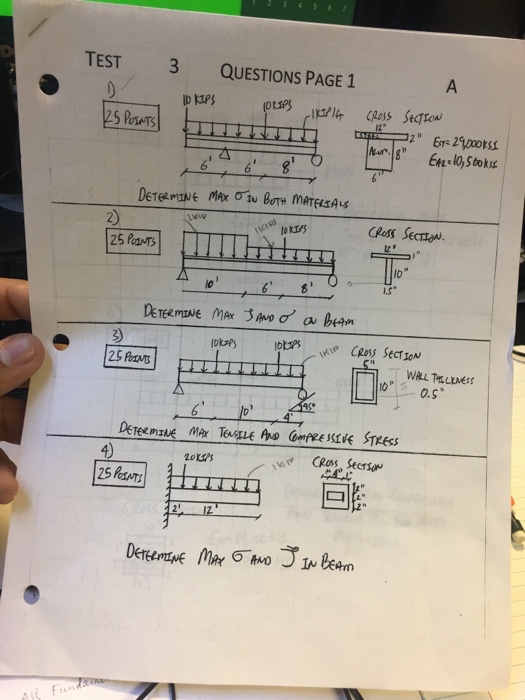 TEST 3 QUESTIONS PAGE 1 A
1)
25 POINTS
10 KIPS
10 KIPS
1KIP/FT
6' 6' 8'
CROSS SECTION
12"
STEEL
2"
ALUM.
8"
6"
EST= 29,000KSI
EAL=10,500KSI
DETERMINE MAX σ IN BOTH MATERIALS
2)
25 POINTS
2KIP
1KIPS
10 KIPS
10' 6' 8'
CROSS SECTION.
12"
1"
10"
1.5"
DETERMINE MAX AND σ ON BEAM
3)
25 POINTS
10KIPS
10KIPS
1KIP
6' 10' 4'
45°
CROSS SECTION
5"
10"
WALL THICKNESS
0.5"
DETERMINE MAX TENSILE AND COMPRESSIVE STRESS
4)
25 POINTS
20KIPS
1KIP
2' 12'
CROSS SECTION
1" 4" 1"
2"
2"
2"
DETERMINE MAX σ AND IN BEAM
All